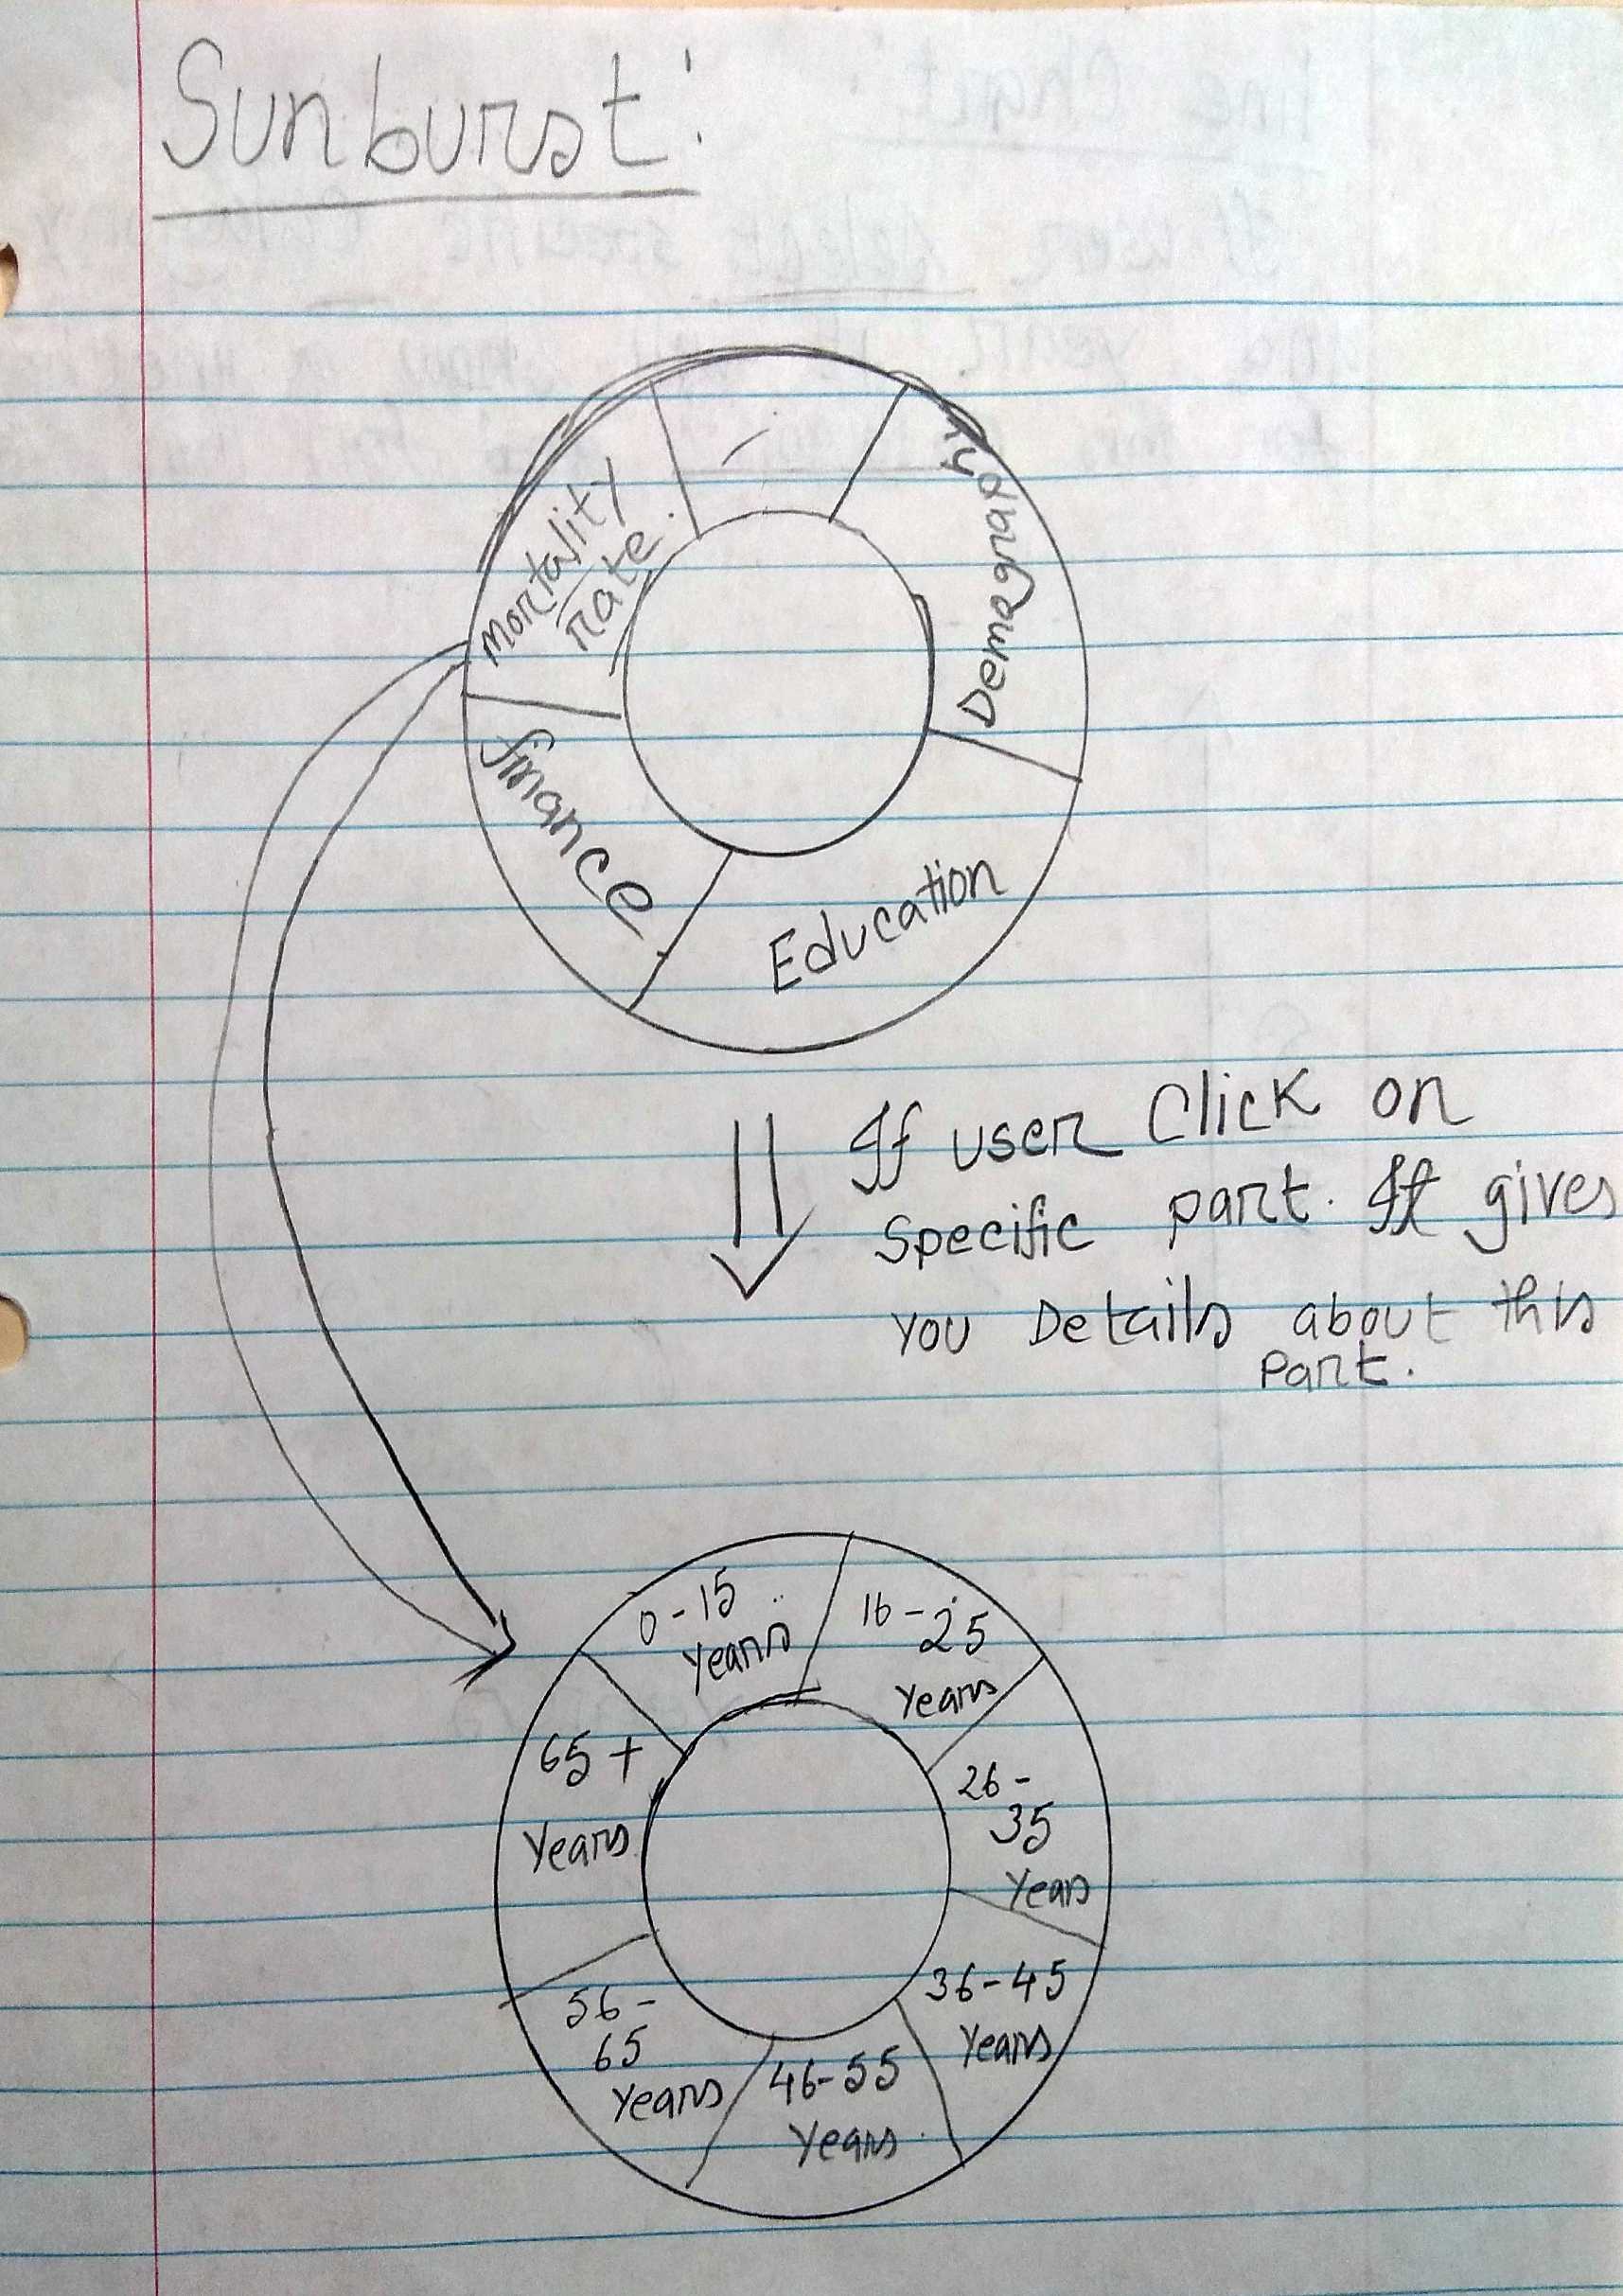 Sunburst:
Mortality
rate.
Demagraphy
finance
Education
If user Click on
Specific part. It gives
you Details about this
part.
0-15
years
16-25
years
26-
35
Years
65+
years
36-45
years
56-
65
years
46-55
Years.